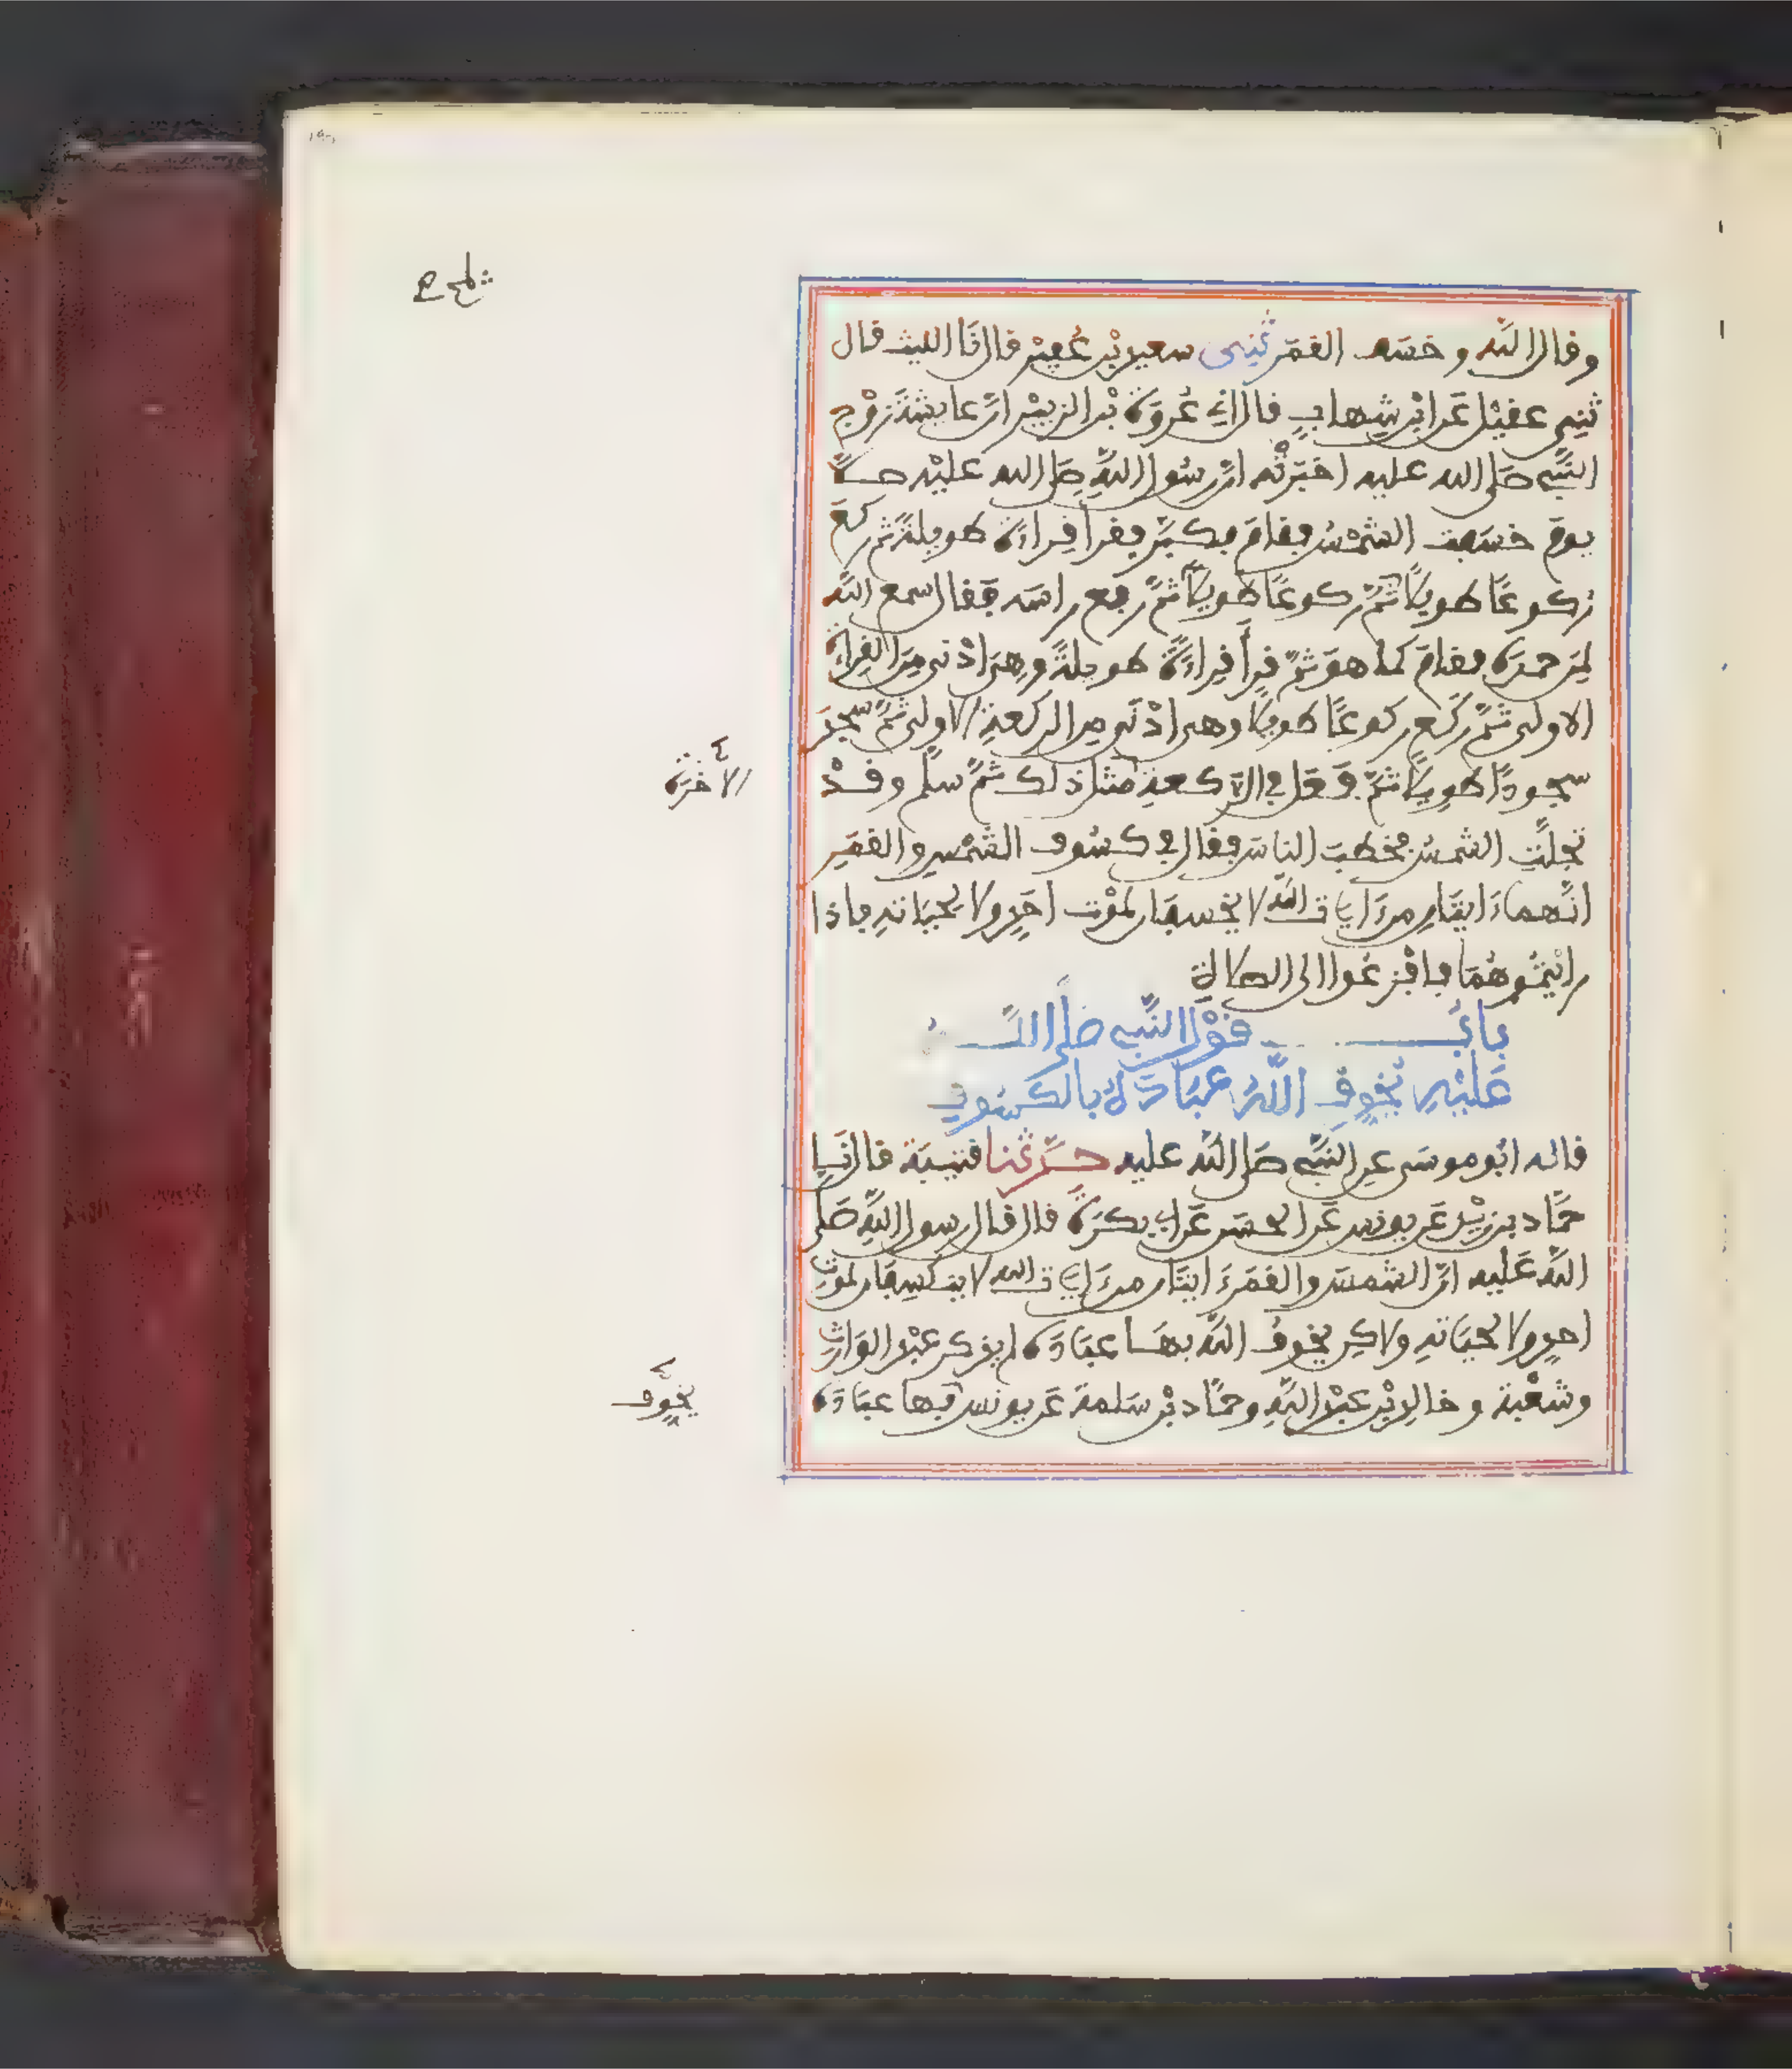 وقال الله وخسف القمر ثني سعيد بن عفير قال نا الليث قال
ثني عقيل عن ابن شهاب قال اني عروة بن الزبير ان عايشة زوج
النبي صلى الله عليه اخبرته ان رسول الله صلى الله عليه صلى
يوم خسفت الشمس فقام فكبر فقرأ قراءة طويلة ثم ركع
ركوعا طويلا ثم رفع راسه فقال سمع الله
لمن حمده فقام كما هو ثم قرأ قراءة طويلة وهي ادنى من القراءة
الاولى ثم ركع ركوعا طويلا وهي ادنى من الركعة الاولى ثم سجد
سجودا طويلا ثم فعل في الركعة مثل ذلك ثم سلم وقد
تجلت الشمس فخطب الناس فقال في كسوف الشمس والقمر
انهما ءايتان من ءايات الله لا يخسفان لموت احد ولا لحياته فاذا
رايتموهما فافزعوا الى الصلاة
باب قول النبي صلى الله
عليه يخوف الله عباده بالكسوف
قاله ابو موسى عن النبي صلى الله عليه حدثنا قتيبة قال نا
حماد بن زيد عن يونس عن الحسن عن ابي بكرة قال قال رسول الله صلى
الله عليه ان الشمس والقمر ءايتان من ءايات الله لا ينكسفان لموت
احد ولا لحياته ولاكن يخوف الله بها عباده لم يذكر عبد الوارث
وشعبة وخالد بن عبد الله وحماد بن سلمة عن يونس بها عباده
الاخرة
يخوف